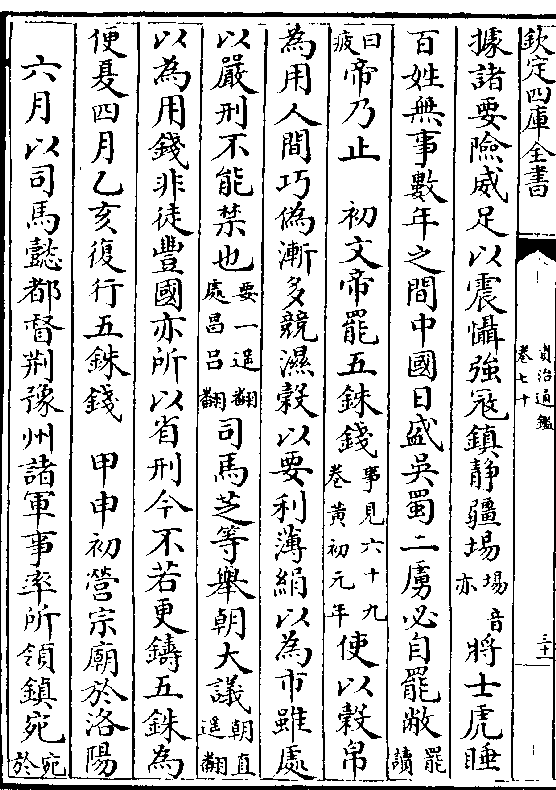 欽定四庫全書
資治通鑑
卷七十
三十一
據諸要險威足以震懾強寇鎮静疆埸埸音亦將士虎睡
百姓無事數年之間中國日盛吳蜀二虜必自罷敝罷讀
曰疲帝乃止　初文帝罷五銖錢事見六十九卷黃初元年使以穀帛
為用人間巧偽漸多競濕穀以要利薄絹以為市雖處
以嚴刑不能禁也要一遥翻處昌吕翻司馬芝等舉朝大議朝直遥翻
以為用錢非徒豐國亦所以省刑今不若更鑄五銖為
便夏四月乙亥復行五銖錢　甲申初營宗廟於洛陽
六月以司馬懿都督荆豫州諸軍事率所領鎮宛宛於